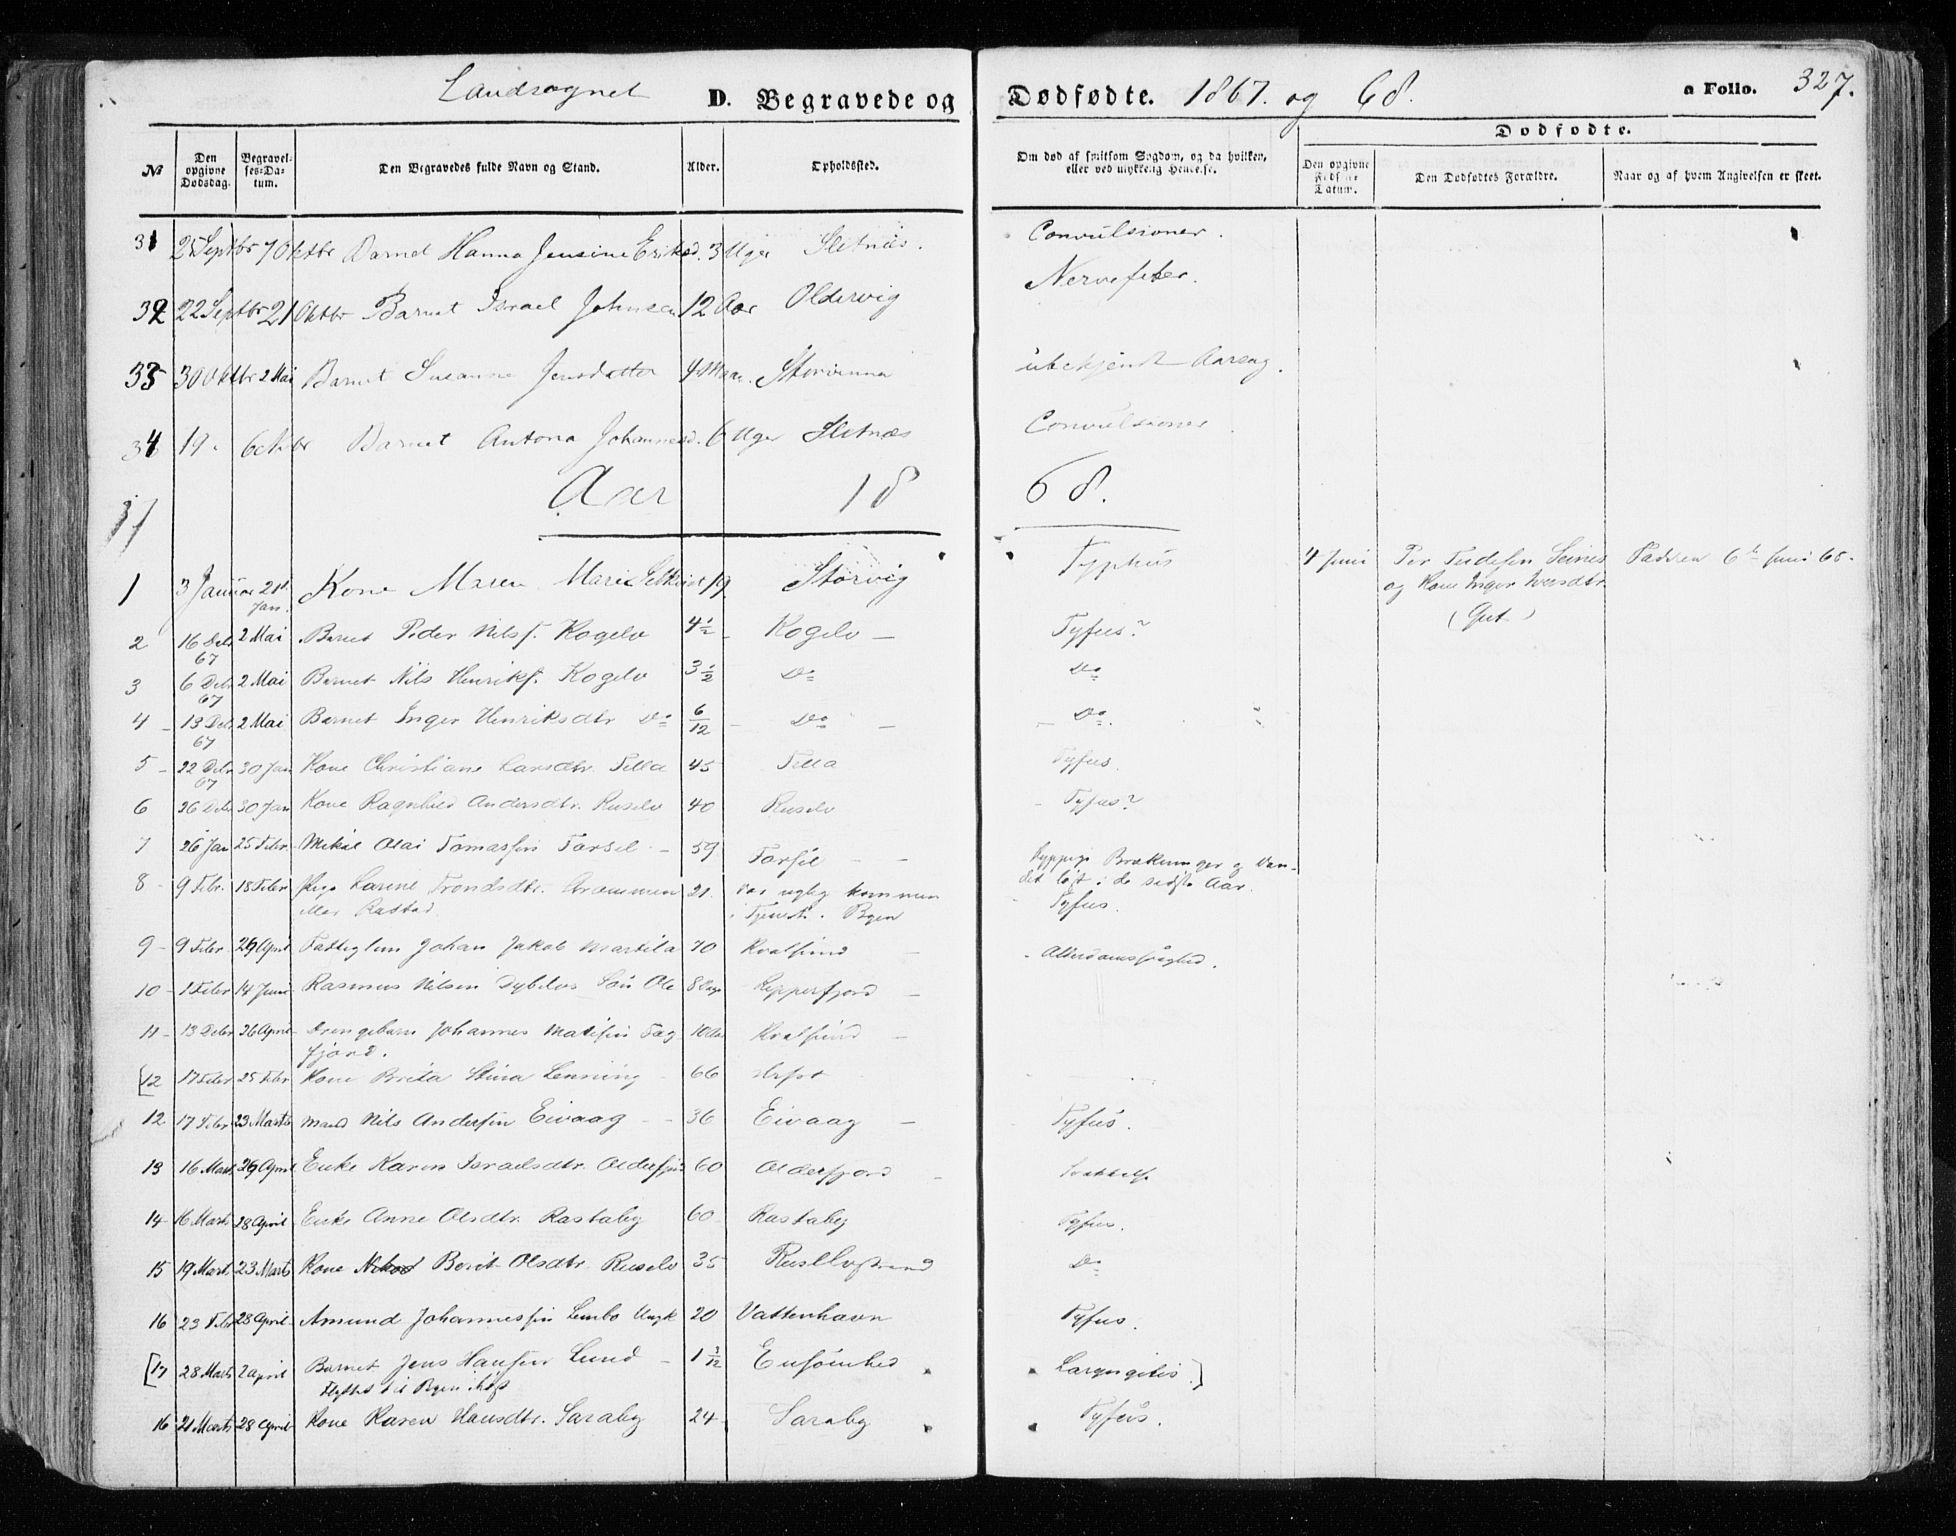 Landsognet D. Begravede og Dødfødte. 1867. og 68. a Folio. 327.
Dødfødte.
No Den opgivne Dødsdag. Begravelses-Datum. Den Begravedes fulde Navn og Stand. Alder. Opholdssted. Om død af smitsom Sygdom, og da hvilken, eller ved ulykkelig Hendelse. Den opgivne Fødselsdatum. Den Dødfødtes Forældre. Naar og af hvem Angivelsen er skeet.
31 25 Septbr 7 Oktbr Barnet Hanna Jensine Eriksd. 3 Uger Sletnæs. Convulsioner.
32 22 Septbr 21 Oktbr Barnet Israel Johnsen 12 Aar Oldervig Nervefeber.
33 30 Oktbr 2 Mai Barnet Susanne Jensdatter 4 Maan. Storvinna ubekjendt Aarsag.
34 19. Oktbr Barnet Antona Johannesd. 6 Uger Sletnæs Convulsioner
Aar 18 68.
1 3 Januar 21de Jan. Kone Maren Marie 19 Storvig Typhus 4 Juni Per Seines
og Kone Inger Iversdtr
(Gut)
Faderen 6te Juni 68.
2 16 Debr 67 2 Mai Barnet Peder Nilss. Kogelv 4½ Kogelv Tyfus?
3 6 Debr 67 2 Mai Barnet Nils Henriks. Kogelv 3½ Do Do
4 13 Debr 67 2 Mai Barnet Inger Henriksdtr Do 6/12 Do Do.
5 22 Debr 67 30 Jan Kone Christiane Larsdtr. Fella 45 Fella Tyfus.
6 26 Debr 30 Jan Kone Ragnhild Andersdtr. Ruselv 40 Ruselv Tyfus?
7 26 Jan 25 Febr. Mikal Olai Tomassen Torsel 59 Torfil Hyppige Brækninger og
i de sidste Aar.
8 9 Febr. 18 Febr Pige Larine Trondsdtr. 21. var nylig kommen
eller Rastad i Tjeneste i Byen Tyfus.
9 9 Febr. 26 April Fattiglem Johan Jakob Martila 70 Kvalsund Alderdomssvaghed.
10 1 Febr 14 Juni Rasmus Nilsen Dybelvs Søn Ole 8 Dage Repperfjord
11 13 Debr 26 April Drengebarn Johannes Matisen Fæg
fjord. Kvalsund
[12 17 Febr 25 Febr Kone Brita Stina Lenning 66
12 17 Febr 23 Marts Mand Nils Andersen Eivaag 36 Eivaag Tyfus.
13 16 Marts 26 April Enke Karen Israelsdtr. Olderfjord 60 Olderfjord
14 16 Marts 28 April Enke Anne Olsdtr. Rastaby 60 Rastaby Tyfus.
15 19 Marts 23 Marts Kone Berit Olsdtr. Ruselv 35 Ruselvstrand Do
16 23 Febr 28 April Amund Johannessen Lembo Ungk 20 Vattenhavn Tyfus.
[17 28 Marts 2 april Barnet Jens Hansen Lund 1 3/12 Ensomhed Laryngitis.]
Flyttet til Byen
16 21 Marts 28 April Kone Karen Hansdtr. Saraby 24 Saraby Tyfus.